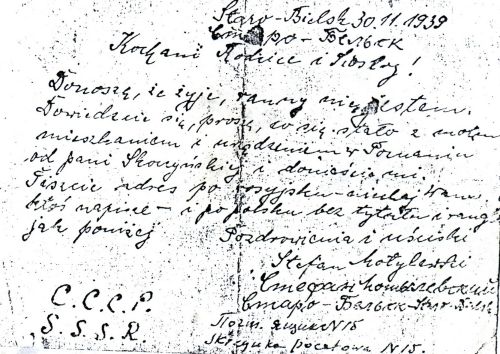 Staro-Bielsk 30.11.1939
Старо-Бельск
Kochani Rodzice i Siostry!
Donoszę, że żyję, ranny nie jestem.
Dowiedzcie się, proszę, co się stało z moim
mieszkaniem i urządzeniem w Poznaniu
od pani Skoczyńskiej i donieście mi.
Piszcie adres po rosyjsku - niechaj Wam
ktoś napisze - i po polsku bez tytułu i rangi
jak poniżej Pozdrowienia i uściski
Stefan
Стефан
Старо-Бельск - Star-Bielsk
C.C.C.P. Почт. ящик N 15
S.S.S.R. skrzynka pocztowa N 15.